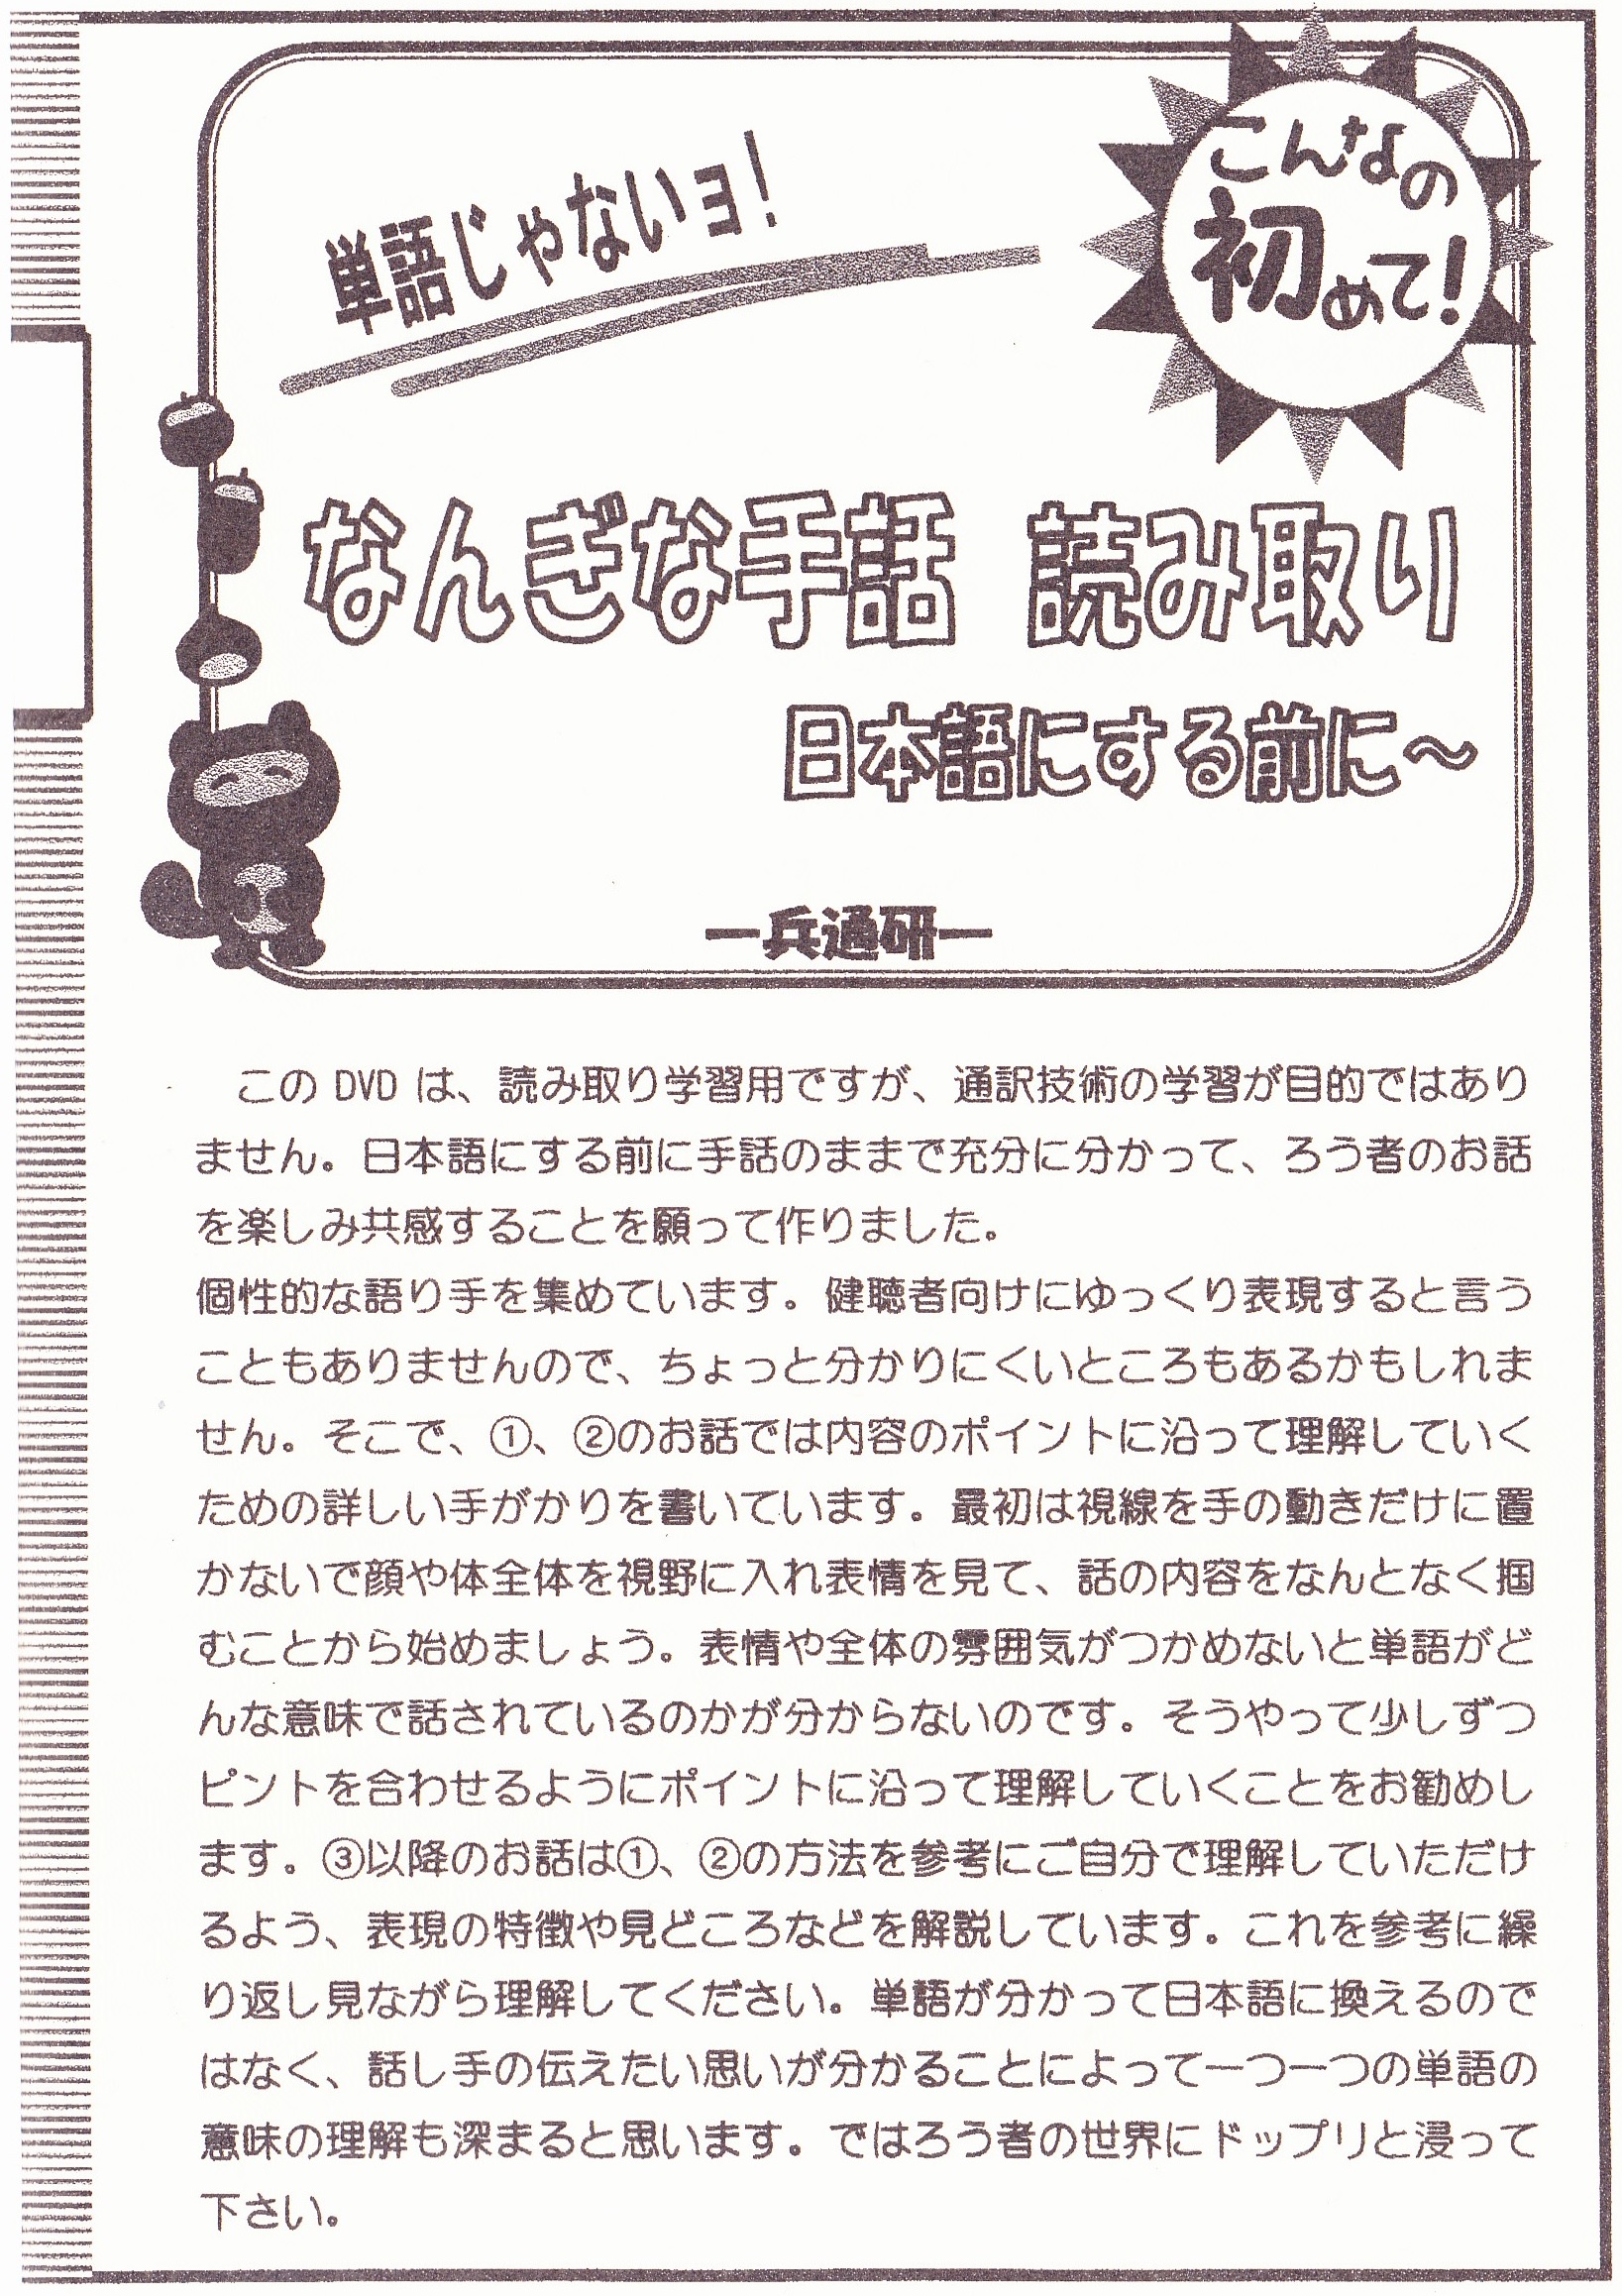 こんなの
初めて!
単語じゃないヨ!
なんぎな手話 読み取り
日本語にする前に～
―兵通研―
このDVDは、読み取り学習用ですが、通訳技術の学習が目的ではあり
ません。日本語にする前に手話のままで充分に分かって、ろう者のお話
を楽しみ共感することを願って作りました。
個性的な語り手を集めています。健聴者向けにゆっくり表現すると言う
こともありませんので、ちょっと分かりにくいところもあるかもしれま
せん。そこで、①、②のお話では内容のポイントに沿って理解していく
ための詳しい手がかりを書いています。最初は視線を手の動きだけに置
かないで顔や体全体を視野に入れ表情を見て、話の内容をなんとなく掴
むことから始めましょう。表情や全体の雰囲気がつかめないと単語がど
んな意味で話されているのかが分からないのです。そうやって少しずつ
ピントを合わせるようにポイントに沿って理解していくことをお勧めし
ます。③以降のお話は①、②の方法を参考にご自分で理解していただけ
るよう、表現の特徴や見どころなどを解説しています。これを参考に繰
り返し見ながら理解してください。単語が分かって日本語に換えるので
はなく、話し手の伝えたい思いが分かることによって一つ一つの単語の
意味の理解も深まると思います。ではろう者の世界にドップリと浸って
下さい。